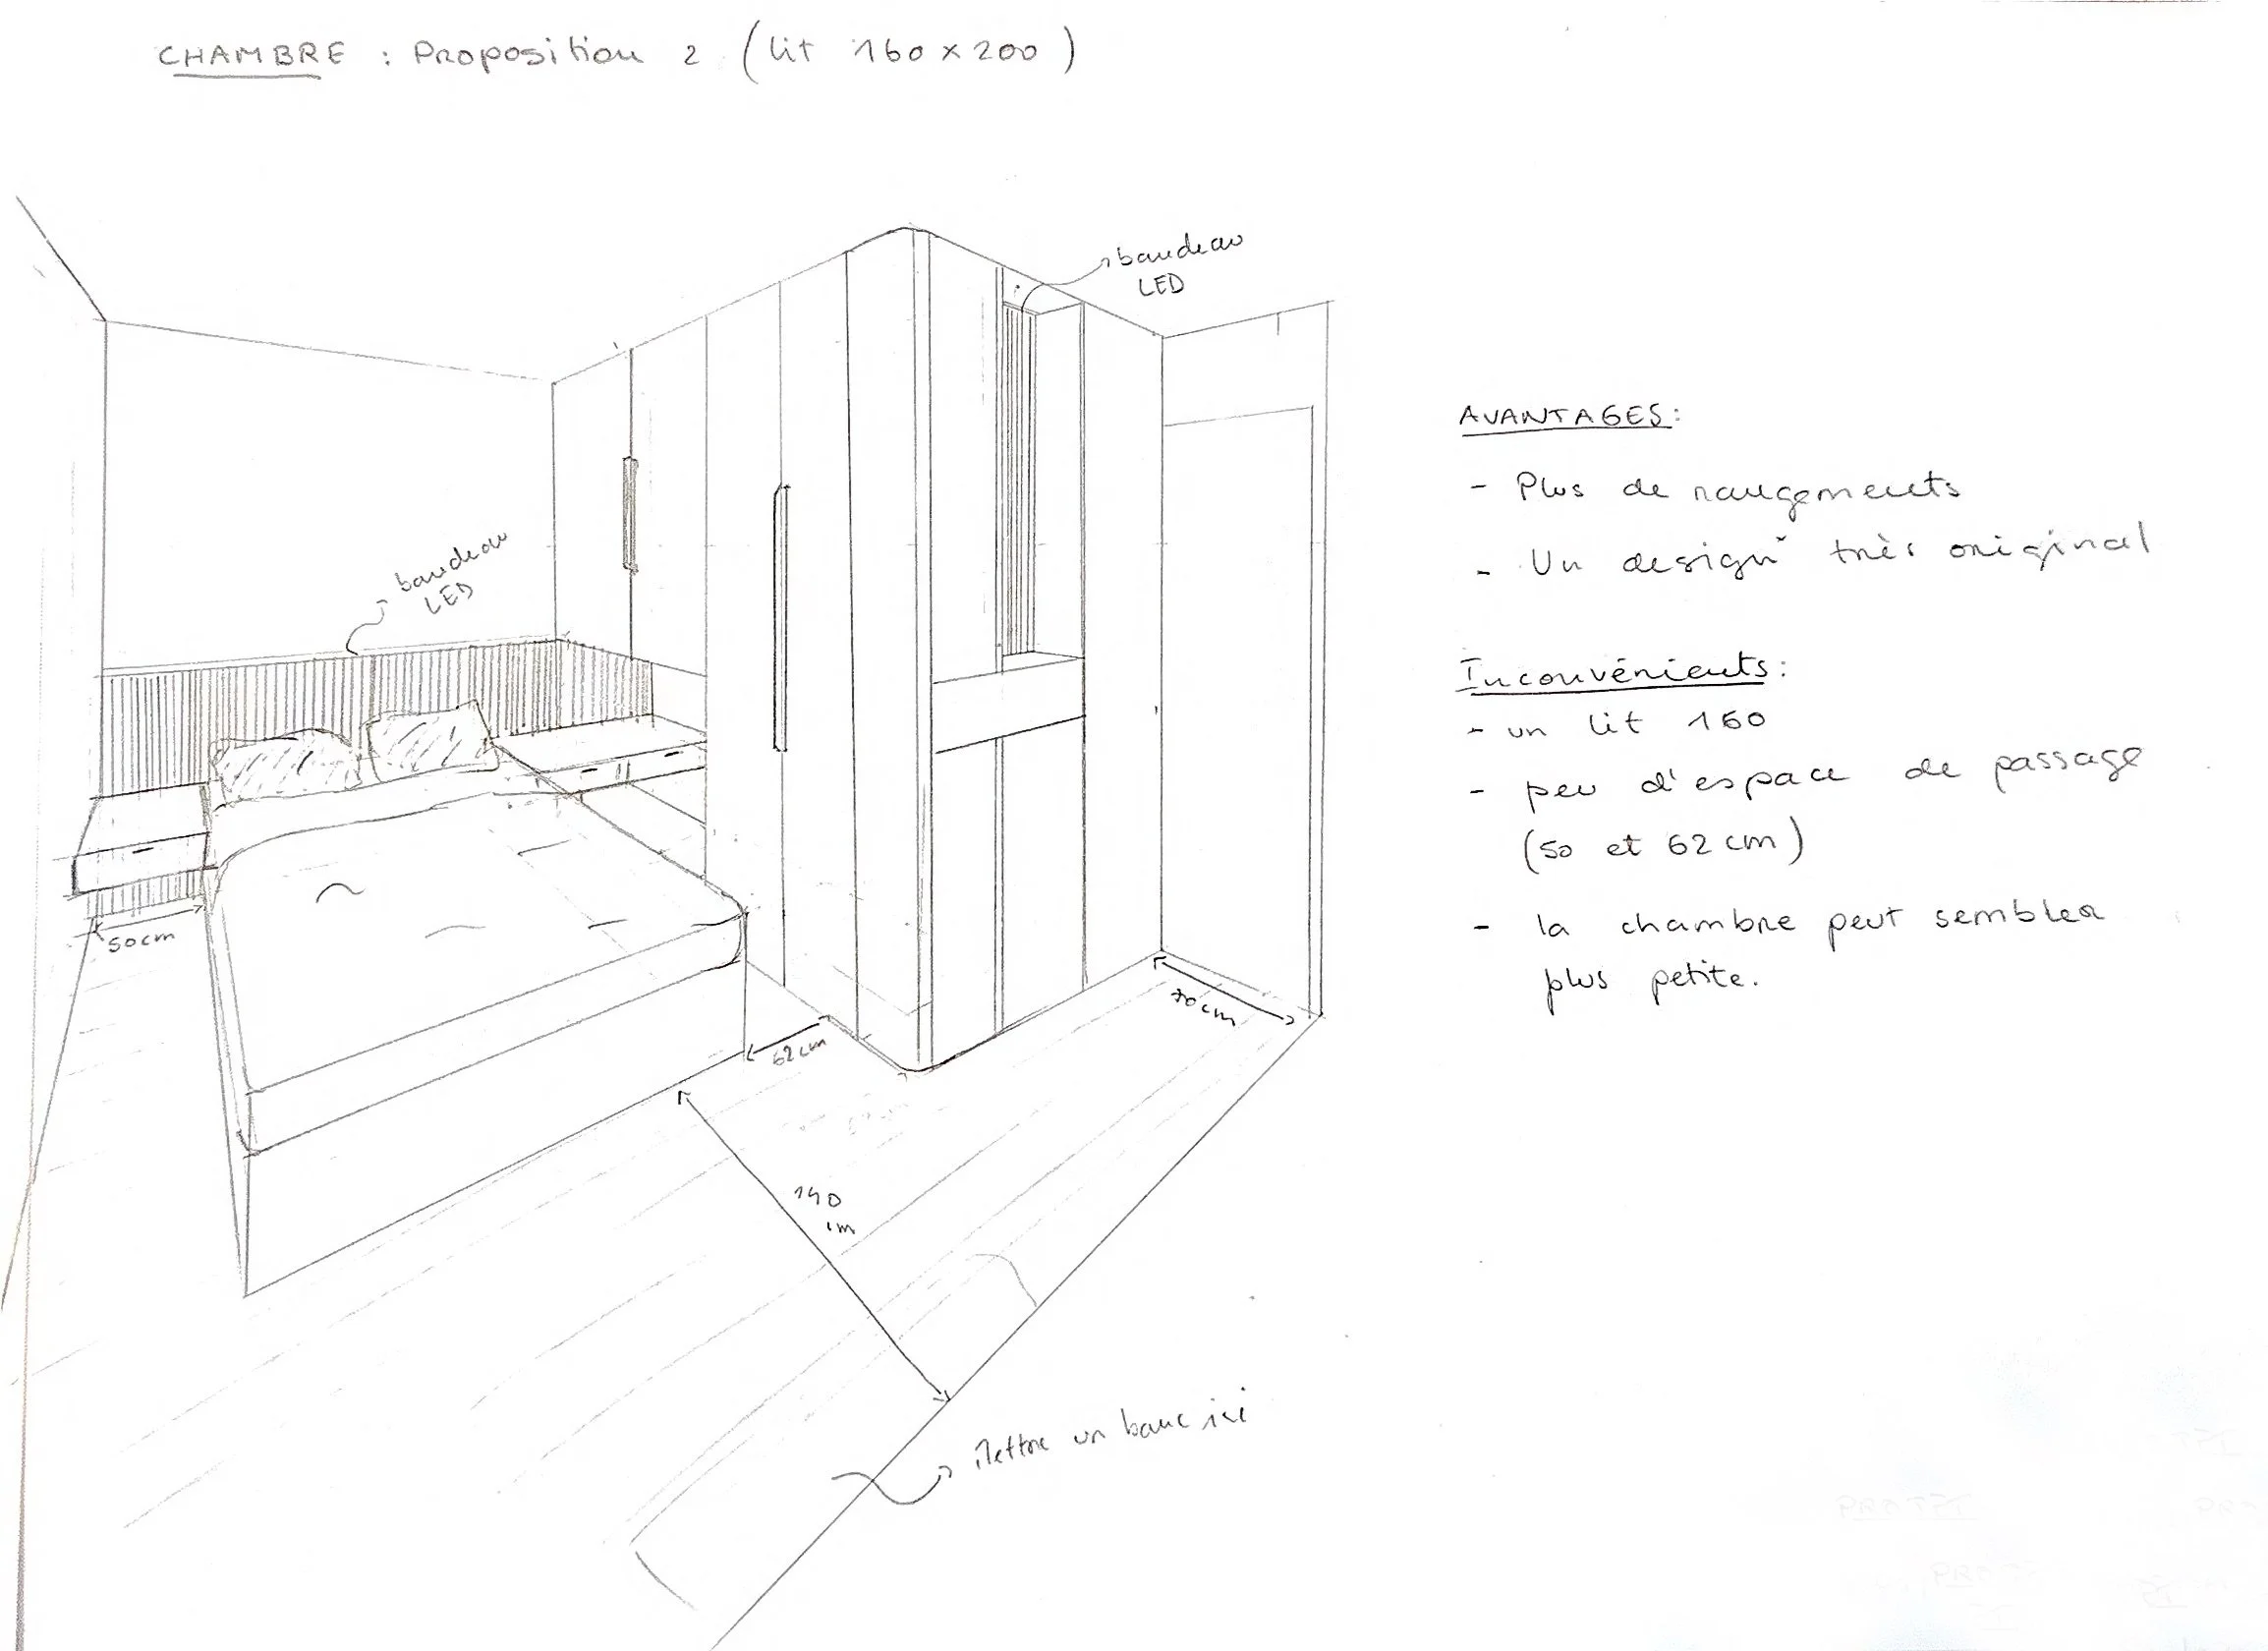 CHAMBRE : Proposition 2 (lit 160 x 200)
bandeau
LED
bandeau
LED
50cm
62 cm
70cm
140
cm
Mettre un banc ici
AVANTAGES:
- Plus de rangements
- Un design très original
Inconvénients:
- un lit 160
- peu d'espace de passage
(50 et 62 cm)
- la chambre peut sembler
plus petite.